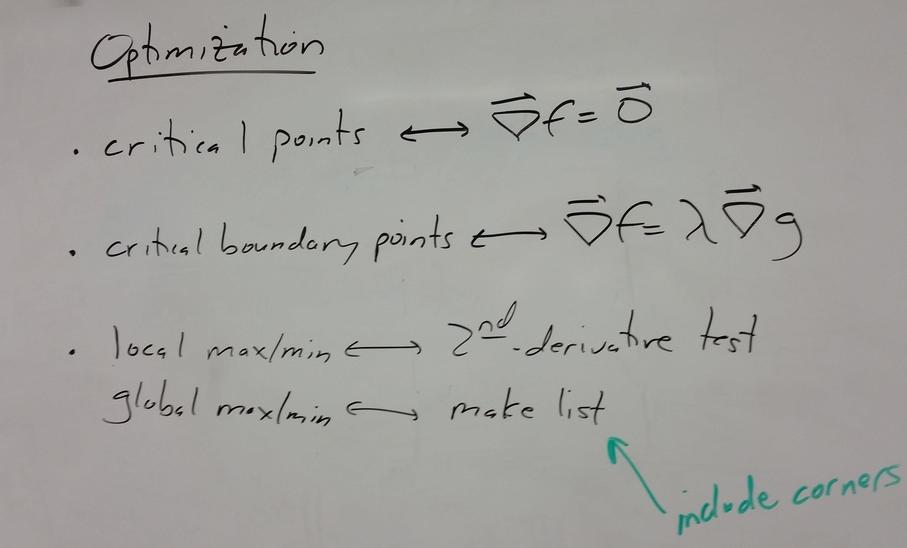 Optimization
· critical points ⟷ ∇⃗f = 0⃗
· critical boundary points ⟷ ∇⃗f = λ∇⃗g
· local max/min ⟷ 2nd-derivative test
global max/min ⟷ make list
include corners